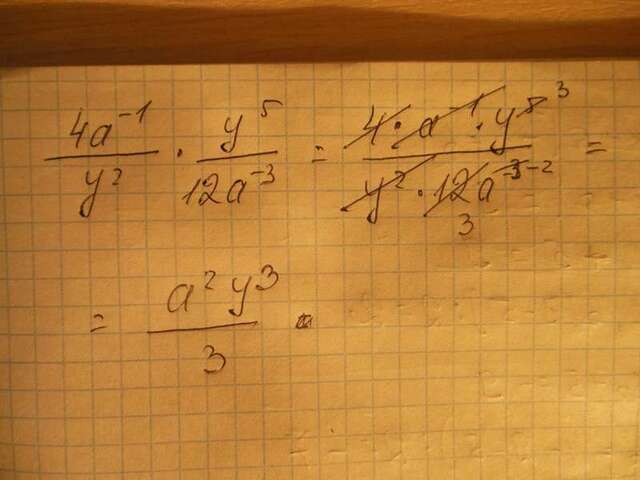 4a⁻¹/y² · y⁵/12a⁻³ = 4·a⁻¹·y⁵ ³/y²·12a⁻³ ⁻² 3 =
= a² y³/3